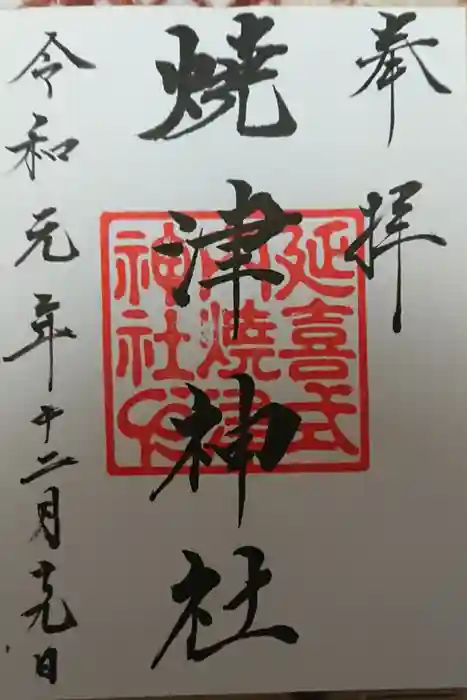 奉拝
燒津神社
延喜式
内燒津
神社印
令和元年十二月十九日